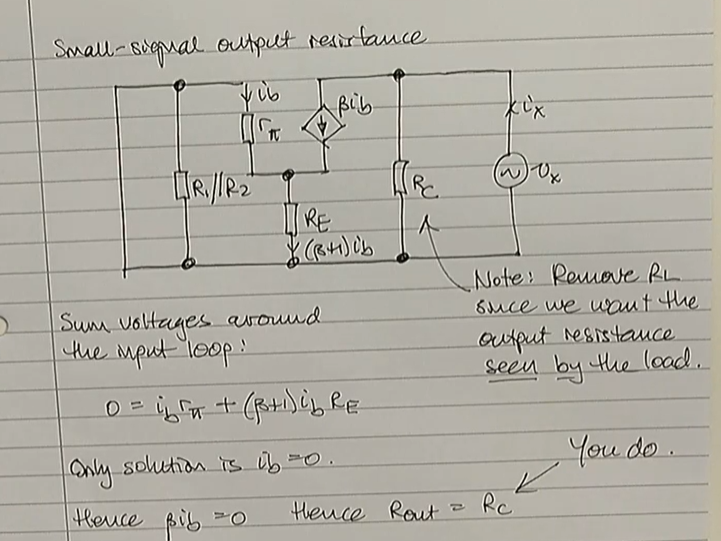 Small-signal output resistance
ib
βib
rπ
ix
R1//R2
RC
vx
RE
(β+1)ib
Note: Remove RL
since we want the
output resistance
seen by the load.
Sum voltages around
the input loop:
0 = ib rπ + (β+1) ib RE
Only solution is ib=0.
You do.
Hence βib=0 Hence Rout = RC